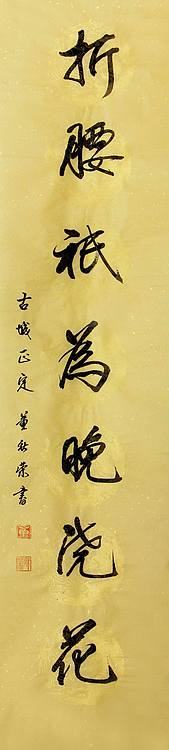 折腰祇為晚浇花
古城正定 董秋荣書